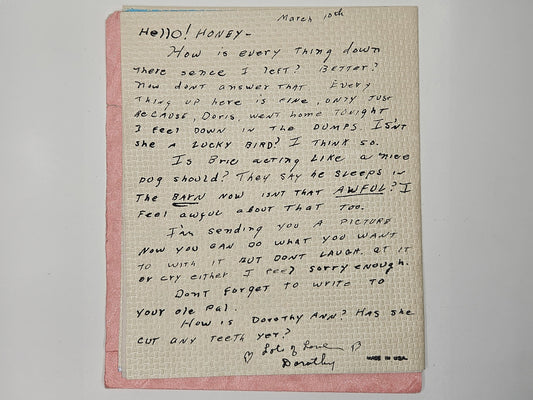 March 10th
Hello! HONEY-
How is every thing down
there sence I left? Better?
Now dont answer that Every
thing up here is fine, only just
because, Doris, went home tonight
I feel down in the dumps. Isn't
she a lucky bird? I think so.
Is Bric acting like a nice
dog should? They say he sleeps in
the BARN now isnt that AWFUL? I
feel awful about that too.
I'm sending you a picture
now you can do what you want
to with it but dont laugh at it
or cry either I feel sorry enough.
Dont forget to write to
your ole pal.
How is Dorothy Ann? Has she
cut any teeth yet?
Lots of Love
Dorothy
MADE IN U.S.A.